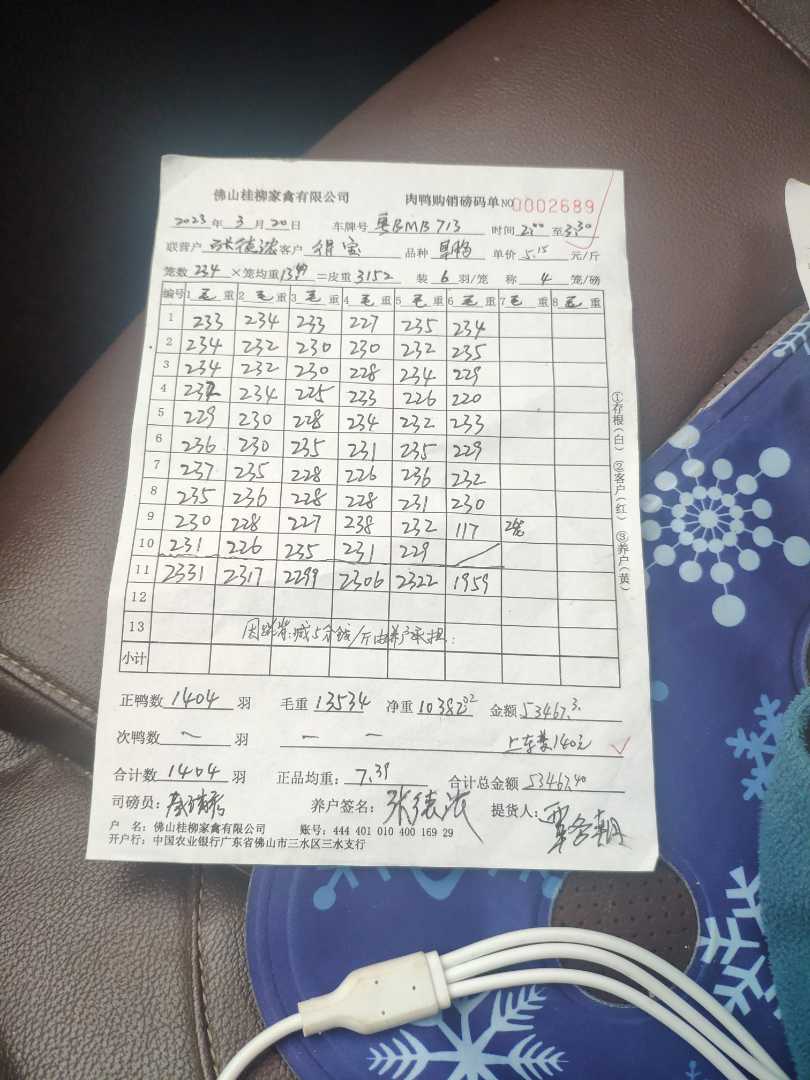 佛山桂柳家禽有限公司 肉鸭购销磅码单 NO 0002689
2023 年 3 月 20 日 车牌号 粤BMB713 时间 2:00 至 3:30
联营户 张德浓 客户 得宝 品种 单价 5.15 元/斤
笼数 234 ×笼均重 13.47 =皮重 3152 装 6 羽/笼 称 4 笼/磅
编号 1 毛 重 2 毛 重 3 毛 重 4 毛 重 5 毛 重 6 毛 重 7 毛 重 8 毛 重
1 233 234 233 227 235 234
2 234 232 230 230 232 235
3 234 232 230 228 234 229
4 232 234 225 233 226 220
5 229 230 228 234 232 233
6 236 230 235 231 235 229
7 237 235 228 226 236 232
8 235 236 228 228 231 230
9 230 228 227 238 232 117 2笼
10 231 226 235 231 229
11 2331 2317 2299 2306 2322 1959
12
13 减5分钱/斤由养户承担
小计
正鸭数 1404 羽 毛重 13534 净重 10382 金额 53467.3
次鸭数 羽 140元
合计数 1404 羽 正品均重: 7.39 合计总金额 53467.40
司磅员: 养户签名: 张德浓 提货人:
户 名: 佛山桂柳家禽有限公司 账号: 444 401 010 400 169 29
开户行: 中国农业银行广东省佛山市三水区三水支行
①存根(白) ②客户(红) ③养户(黄)